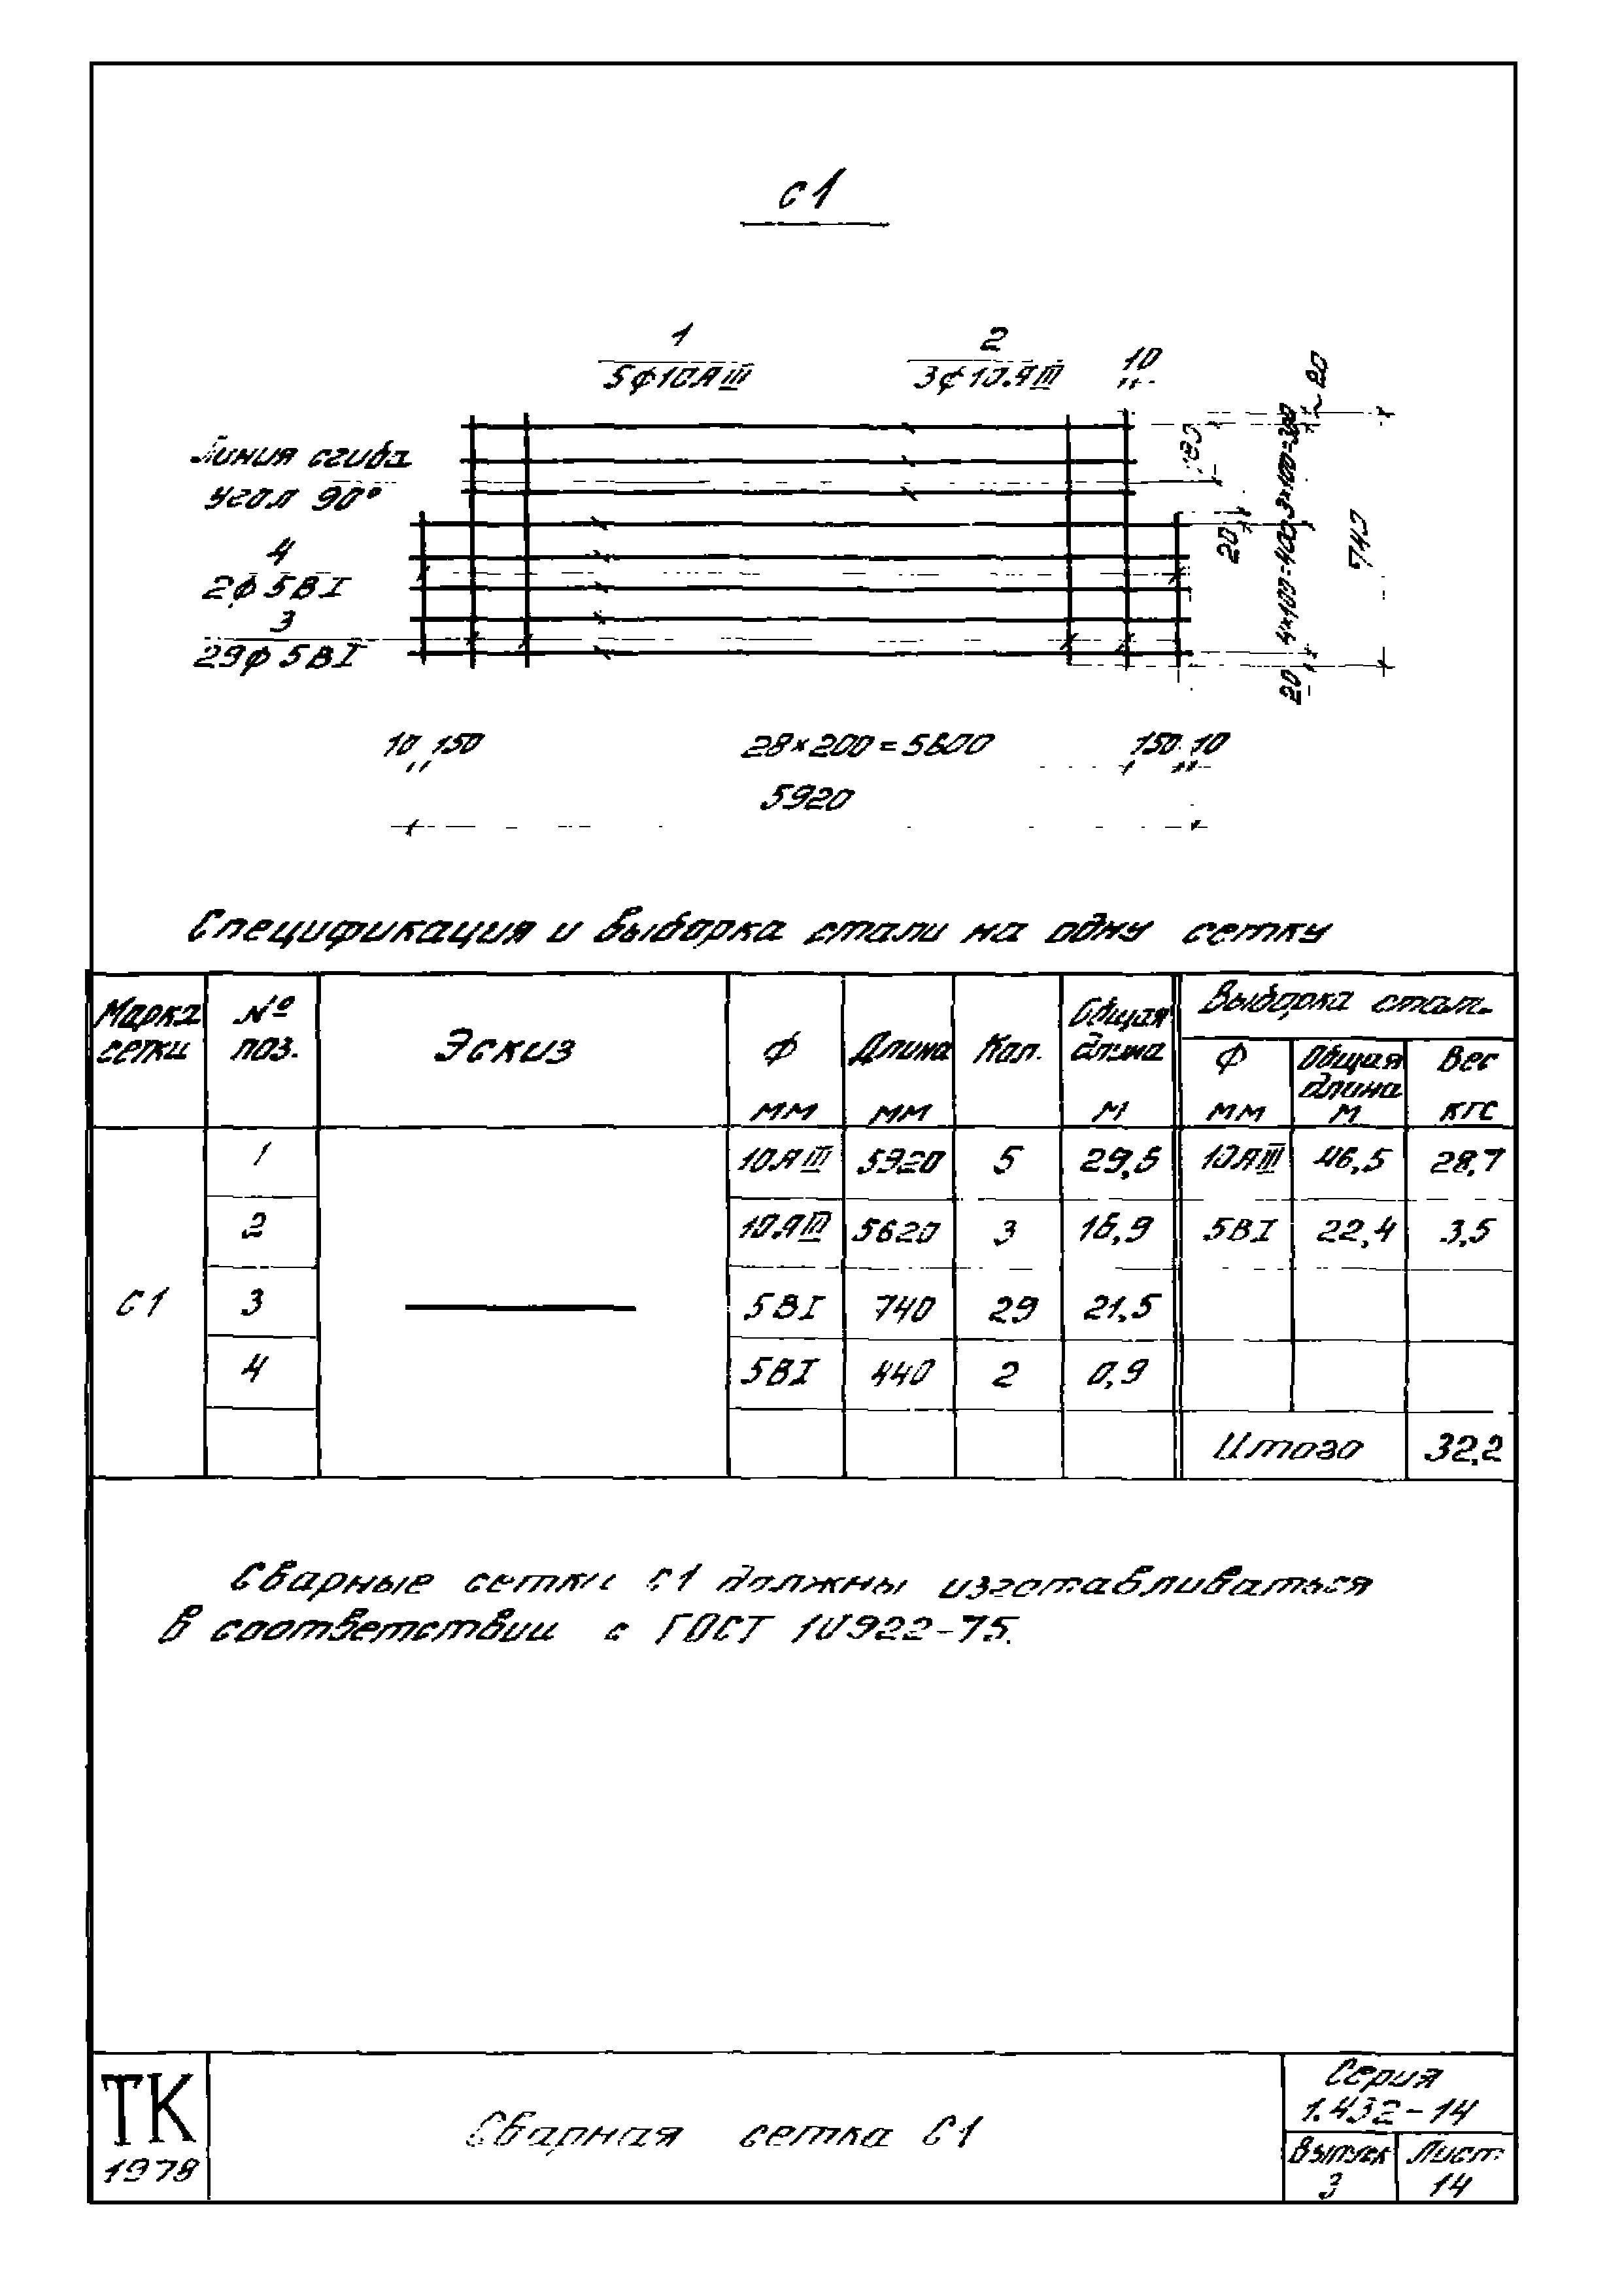 С1
1
5ф10АIII
2
3ф10АIII
10
20
Линия сгиба
угол 90°
180
3×100=300
4
2ф5ВI
20
4×100=400
740
3
29ф5ВI
20
10 150
28×200=5600
150 10
5920
Спецификация и выборка стали на одну сетку
Марка сетки
№ поз.
Эскиз
Ф мм
Длина мм
Кол.
Общая длина м
Выборка стали
Ф мм
Общая длина м
Вес кгс
1 10АIII 5920 5 29,6 10АIII 46,5 28,7
2 10АIII 5620 3 16,9 5ВI 22,4 3,5
С1 3 5ВI 740 29 21,5
4 5ВI 440 2 0,9
Итого 32,2
Сварные сетки С1 должны изготавливаться
в соответствии с ГОСТ 10922-75.
ТК
1978
Сварная сетка С1
Серия
1.432-14
Выпуск
3
Лист
14